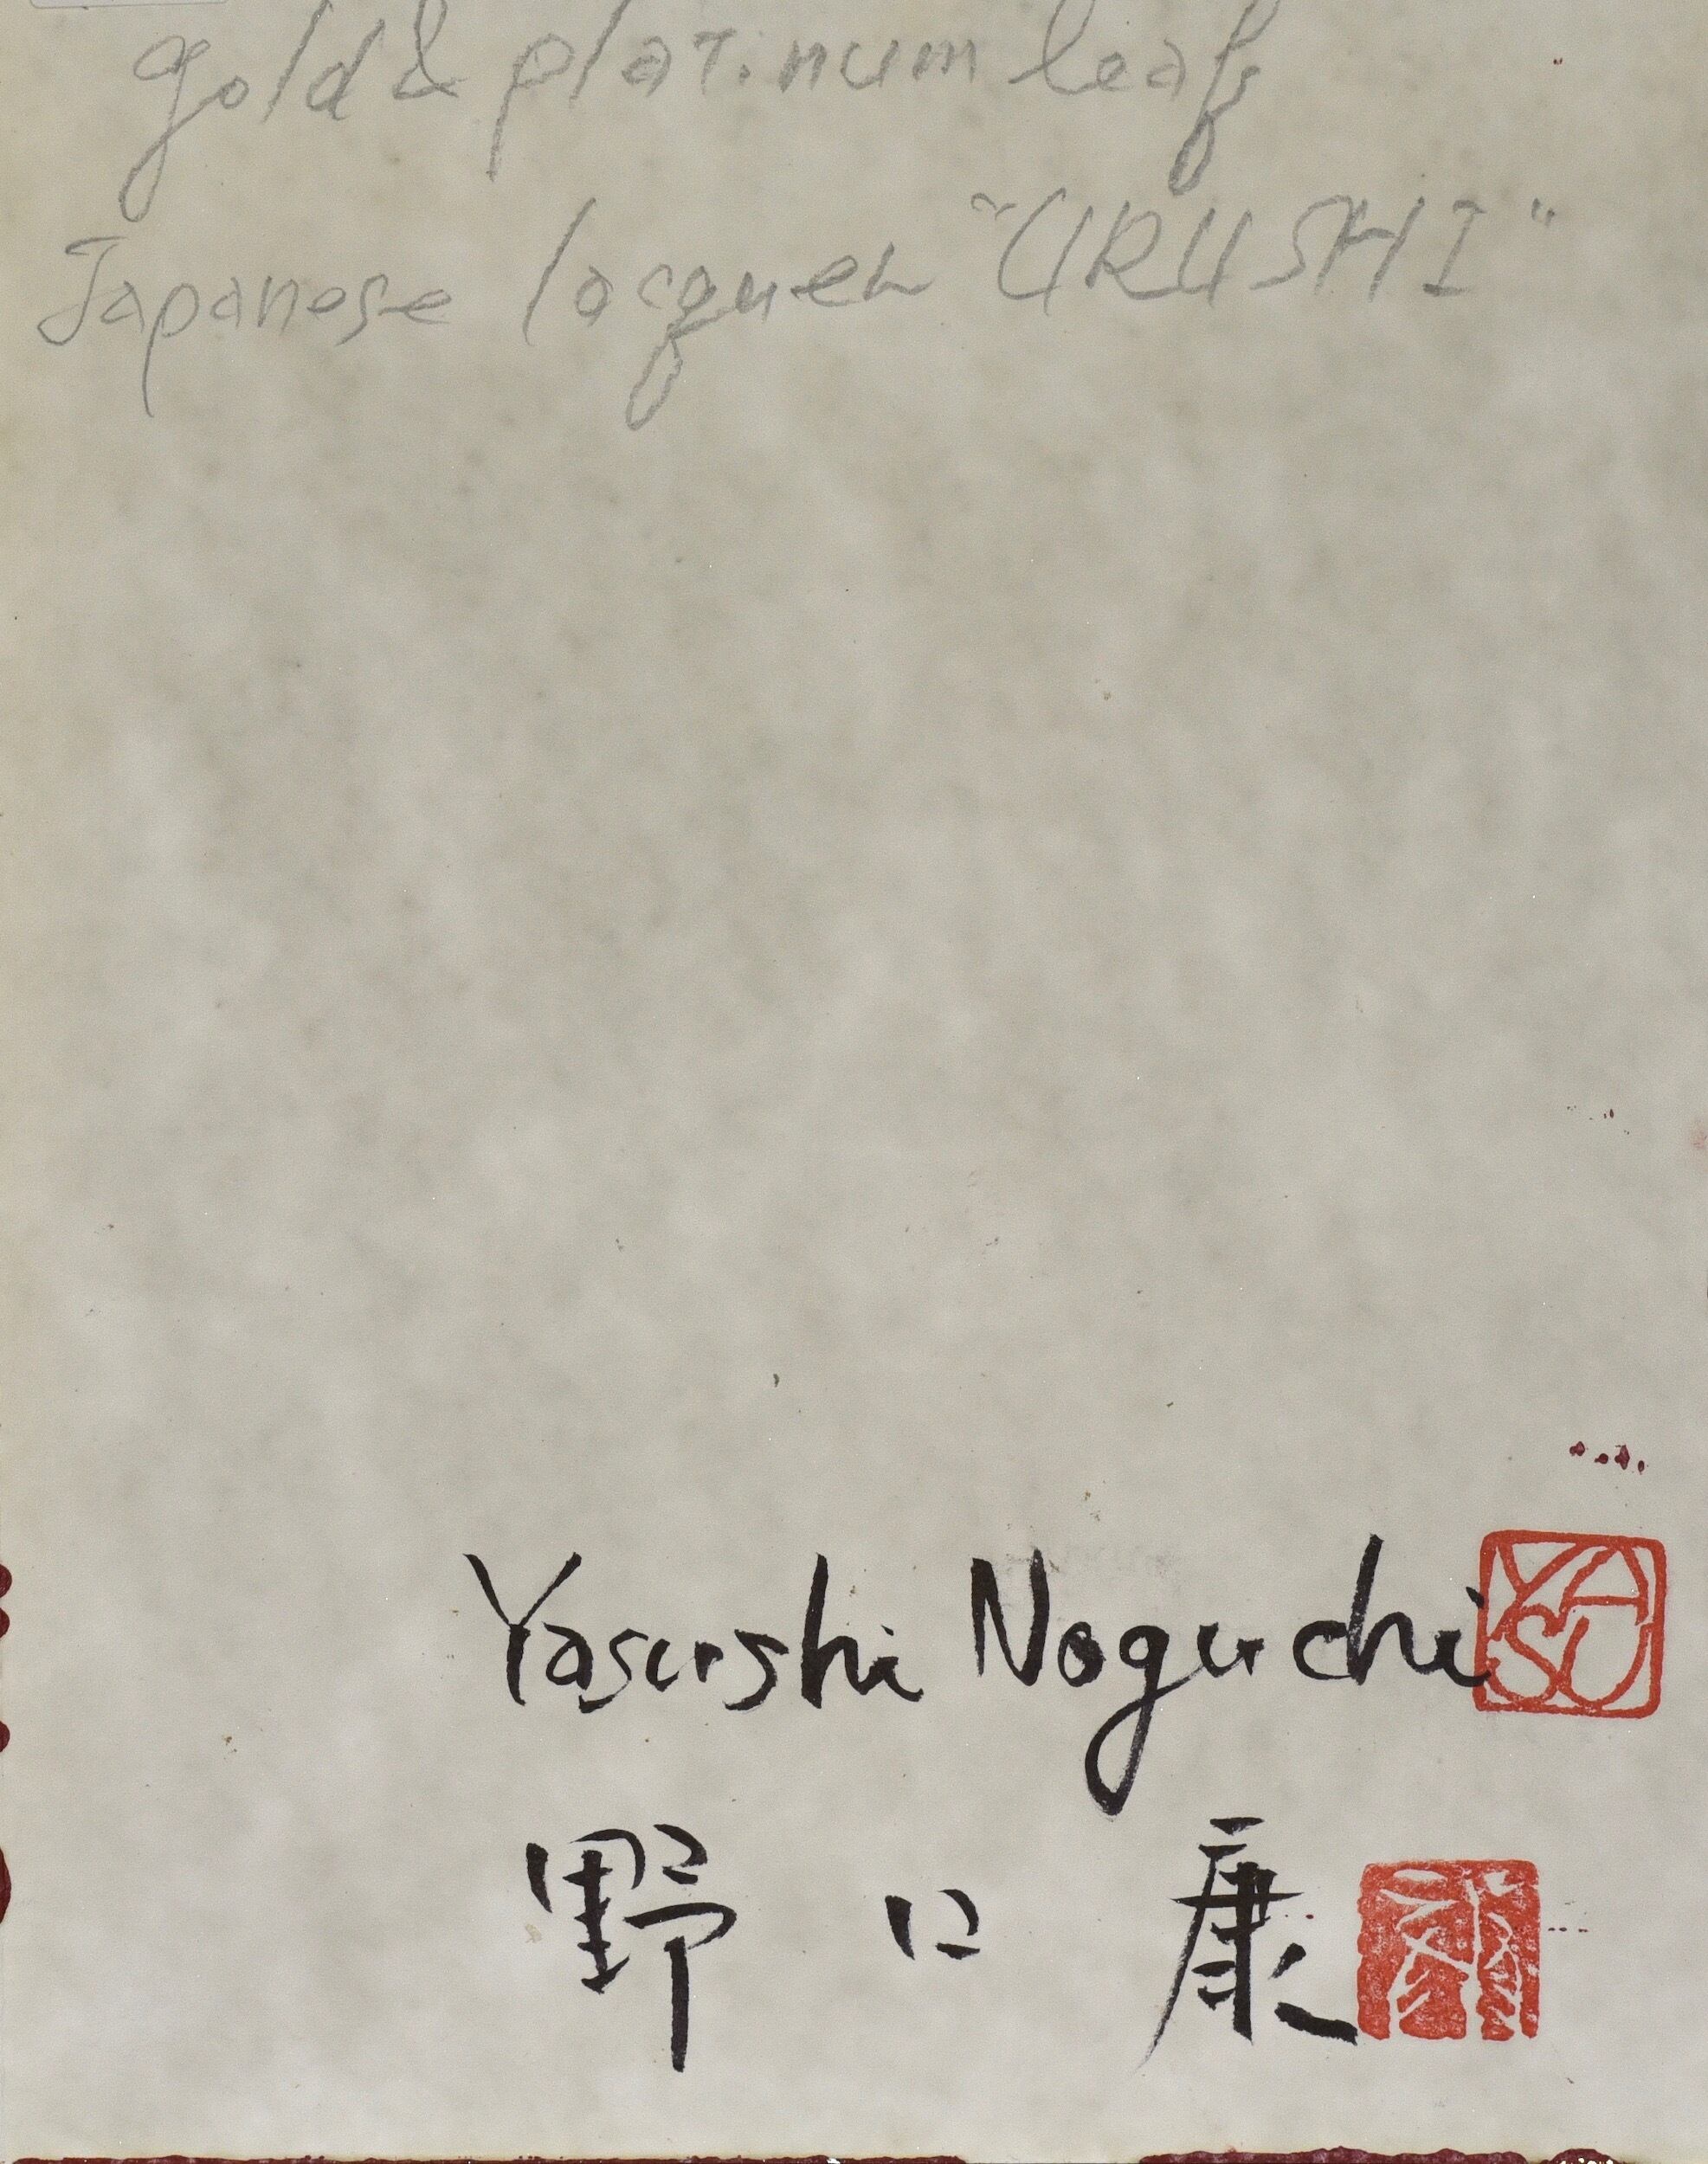 gold & platinum leafs
Japanese lacquer "URUSHI"
Yasushi Noguchi
YASU
野口 康